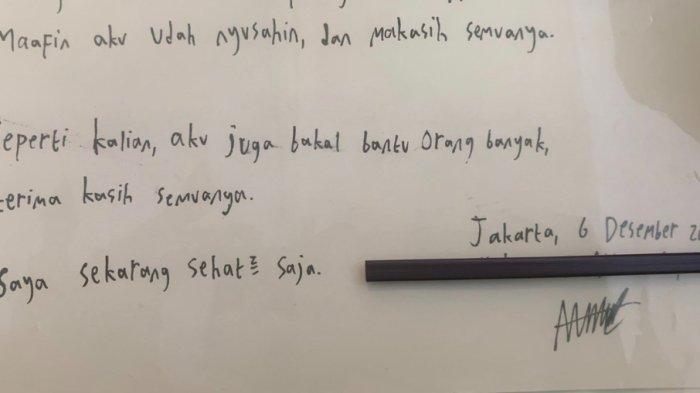 Maafin aku udah nyusahin, dan makasih semuanya.
seperti kalian, aku juga bakal bantu orang banyak,
terima kasih semuanya.
Jakarta, 6 Desember
Saya sekarang sehat² saja.